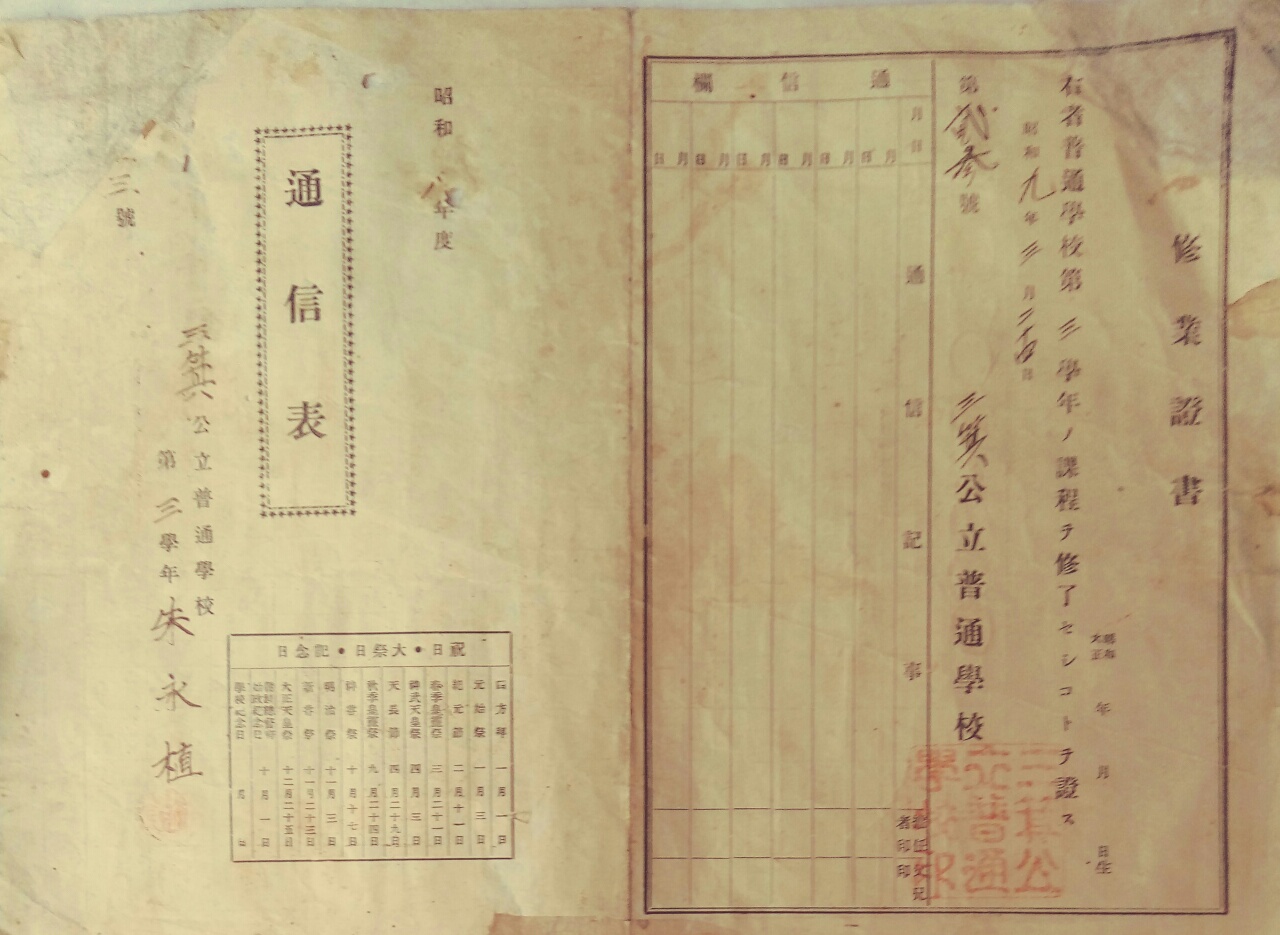 修業證書
大正
昭和
年 月 日生
右者普通學校第三學年ノ課程ヲ修了セシコトヲ證ス
昭和九年三月二十四日
三箕公立普通學校
第弐参號
通信欄
月日
通信記事
擔任者印
父兄印
月日
月日
月日
月日
月日
月日
三箕公立普通學校印
昭和八年度
通信表
三箕公立普通學校
第三學年 朱永植
三號
祝日・大祭日・記念日
四方拜 一月一日
元始祭 一月三日
紀元節 二月十一日
春季皇靈祭 三月二十一日
神武天皇祭 四月三日
天長節 四月二十九日
秋季皇靈祭 九月二十四日
神嘗祭 十月十七日
明治節 十一月三日
新嘗祭 十一月二十三日
大正天皇祭 十二月二十五日
始政記念日 十月一日
學校記念日 月 日